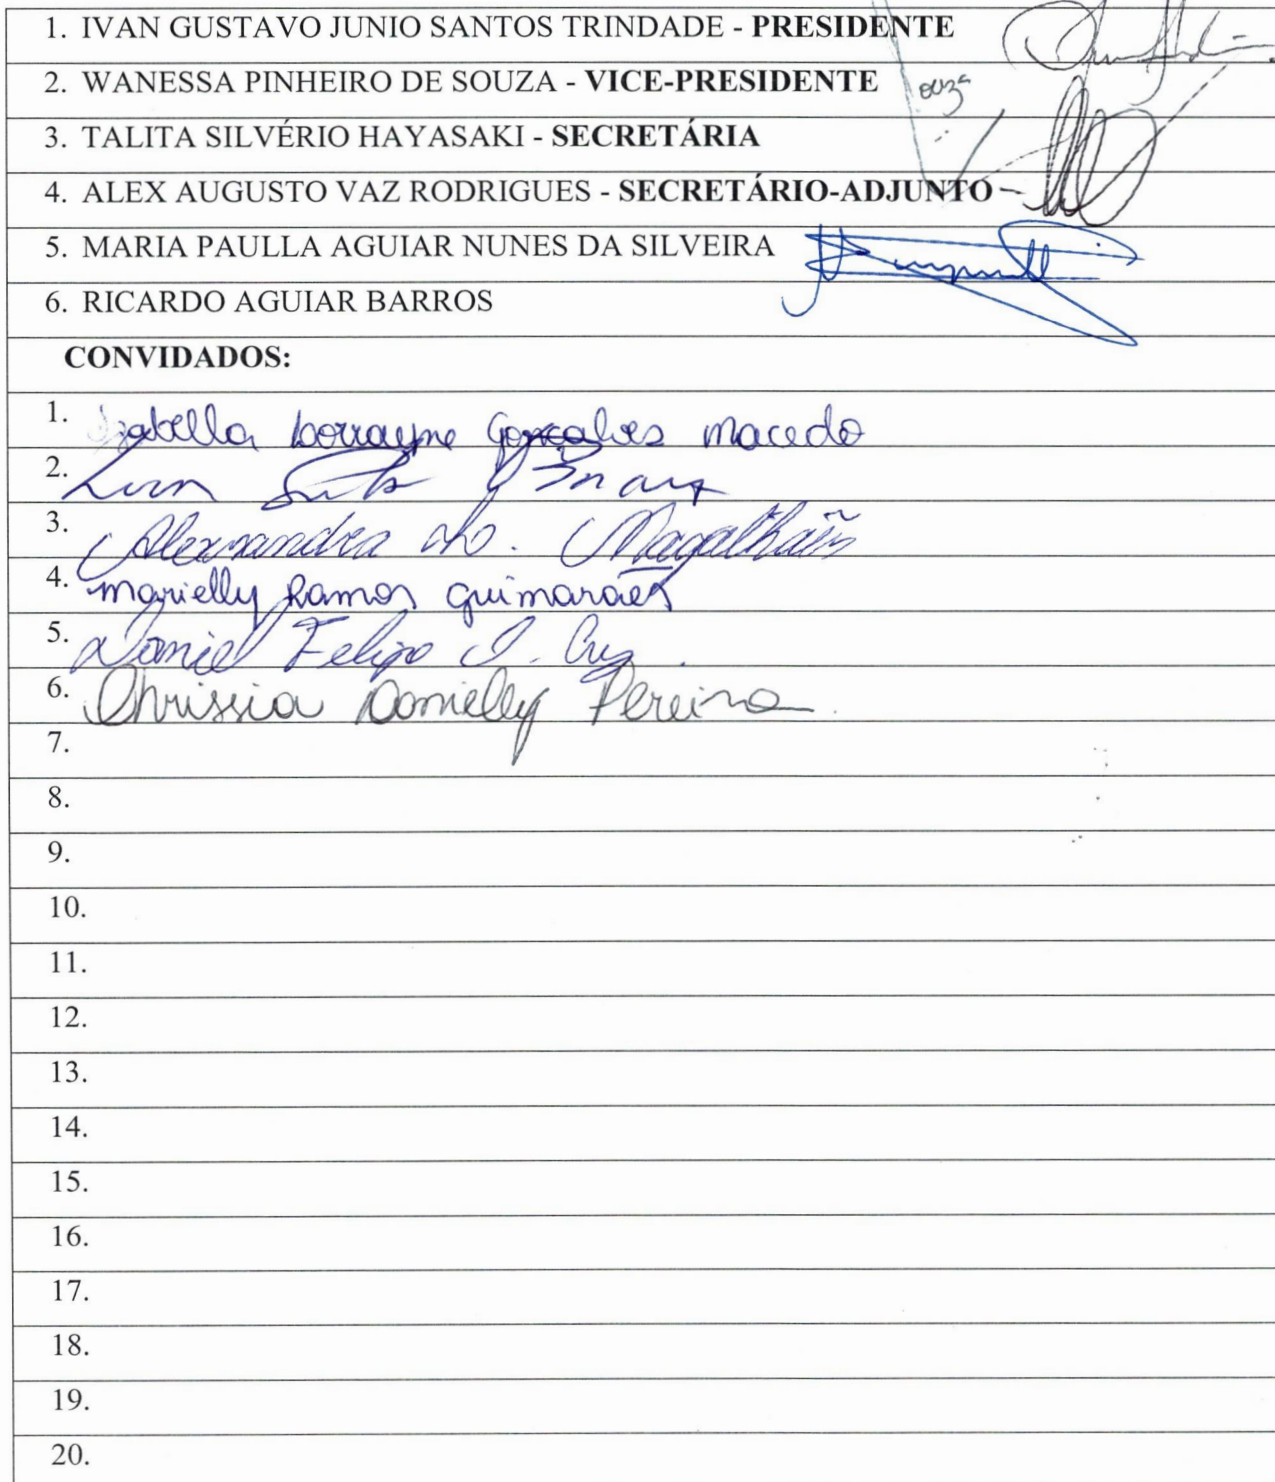 1. IVAN GUSTAVO JUNIO SANTOS TRINDADE - PRESIDENTE
2. WANESSA PINHEIRO DE SOUZA - VICE-PRESIDENTE
ouza
3. TALITA SILVÉRIO HAYASAKI - SECRETÁRIA
4. ALEX AUGUSTO VAZ RODRIGUES - SECRETÁRIO-ADJUNTO
5. MARIA PAULLA AGUIAR NUNES DA SILVEIRA
6. RICARDO AGUIAR BARROS
CONVIDADOS:
1. Izabella Lorrayne Gonçalves Macedo
2.
3. Alexsandra Magalhães
4. Marielly Ramos Guimarães
5. Daniel Felipe
6. Chrissia Danielly Pereira
7.
8.
9.
10.
11.
12.
13.
14.
15.
16.
17.
18.
19.
20.